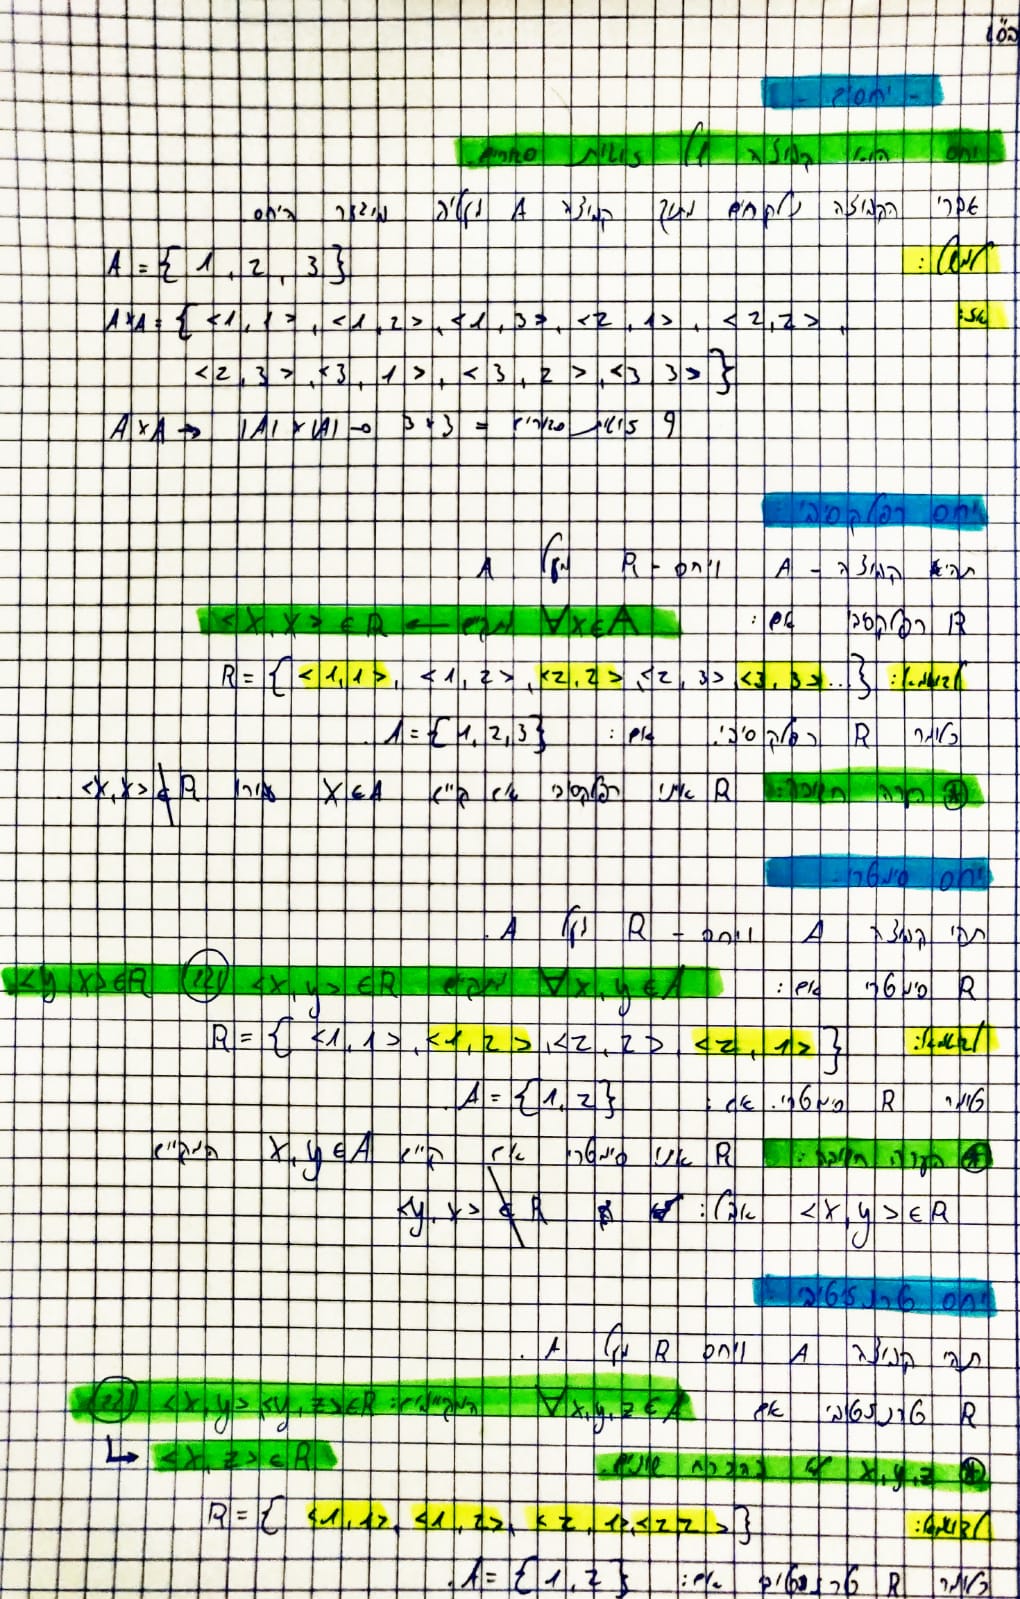 בס"ד
- יחסים -
יחס הוא קבוצה של זוגות סדורים.
אברי הקבוצה נלקחים מתוך קבוצה A שעליה מוגדר היחס.
למשל: A = { 1 , 2 , 3 }
אז: A×A = { <1,1> , <1,2> , <1,3> , <2,1> , <2,2> ,
<2,3> , <3,1> , <3,2> , <3 3> }
A×A → |A| × |A| → 3×3 = זוגות סדורים 9
יחס רפלקסיבי:
תהא קבוצה - A ויחס - R מעל A.
R רפלקסיבי אם: ∀x∈A מתקיים ← <x,x> ∈ R
לדוגמא: R = { <1,1> , <1,2> , <2,2> , <2,3> , <3,3> ... }
כלומר R רפלקסיבי. אם: A = {1,2,3}
הערה חשובה: R אינו רפלקסיבי אם קיים x∈A עבורו <x,x> ∉ R
יחס סימטרי
תהי קבוצה A ויחס - R מעל A.
R סימטרי אם: ∀x,y∈A מתקיים <x,y> ∈ R וגם <y,x> ∈ R
לדוגמא: R = { <1,1> , <1,2> , <2,2> , <2,1> }
כלומר R סימטרי. אם: A = {1,2}.
הערה חשובה: R אינו סימטרי אם קיים x,y∈A המקיים
<x,y> ∈ R אבל: <y,x> ∉ R
יחס טרנזיטיבי:
תהי קבוצה A ויחס R מעל A.
R טרנזיטיבי אם ∀x,y,z∈A המקיימים: <x,y> <y,z> ∈ R
x,y,z לא בהכרח שונים. ↳ <x,z> ∈ R
לדוגמא: R = { <1,1> , <1,2> , <2,1> , <2 2> }
כלומר R טרנזטיבי אם: A = {1,2}.